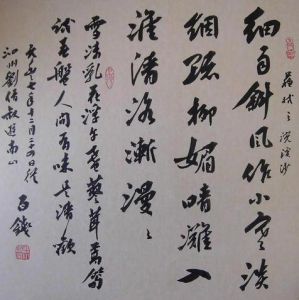 蘇軾之浣溪沙
細雨斜風作小寒淡
烟疏柳媚晴灘入
淮清洛漸漫〻
雪沫乳花浮午盞蓼茸蒿筍
試春盤人間有味是清歡
元豐七年十二月二十四日從
泗州劉倩叔遊南山